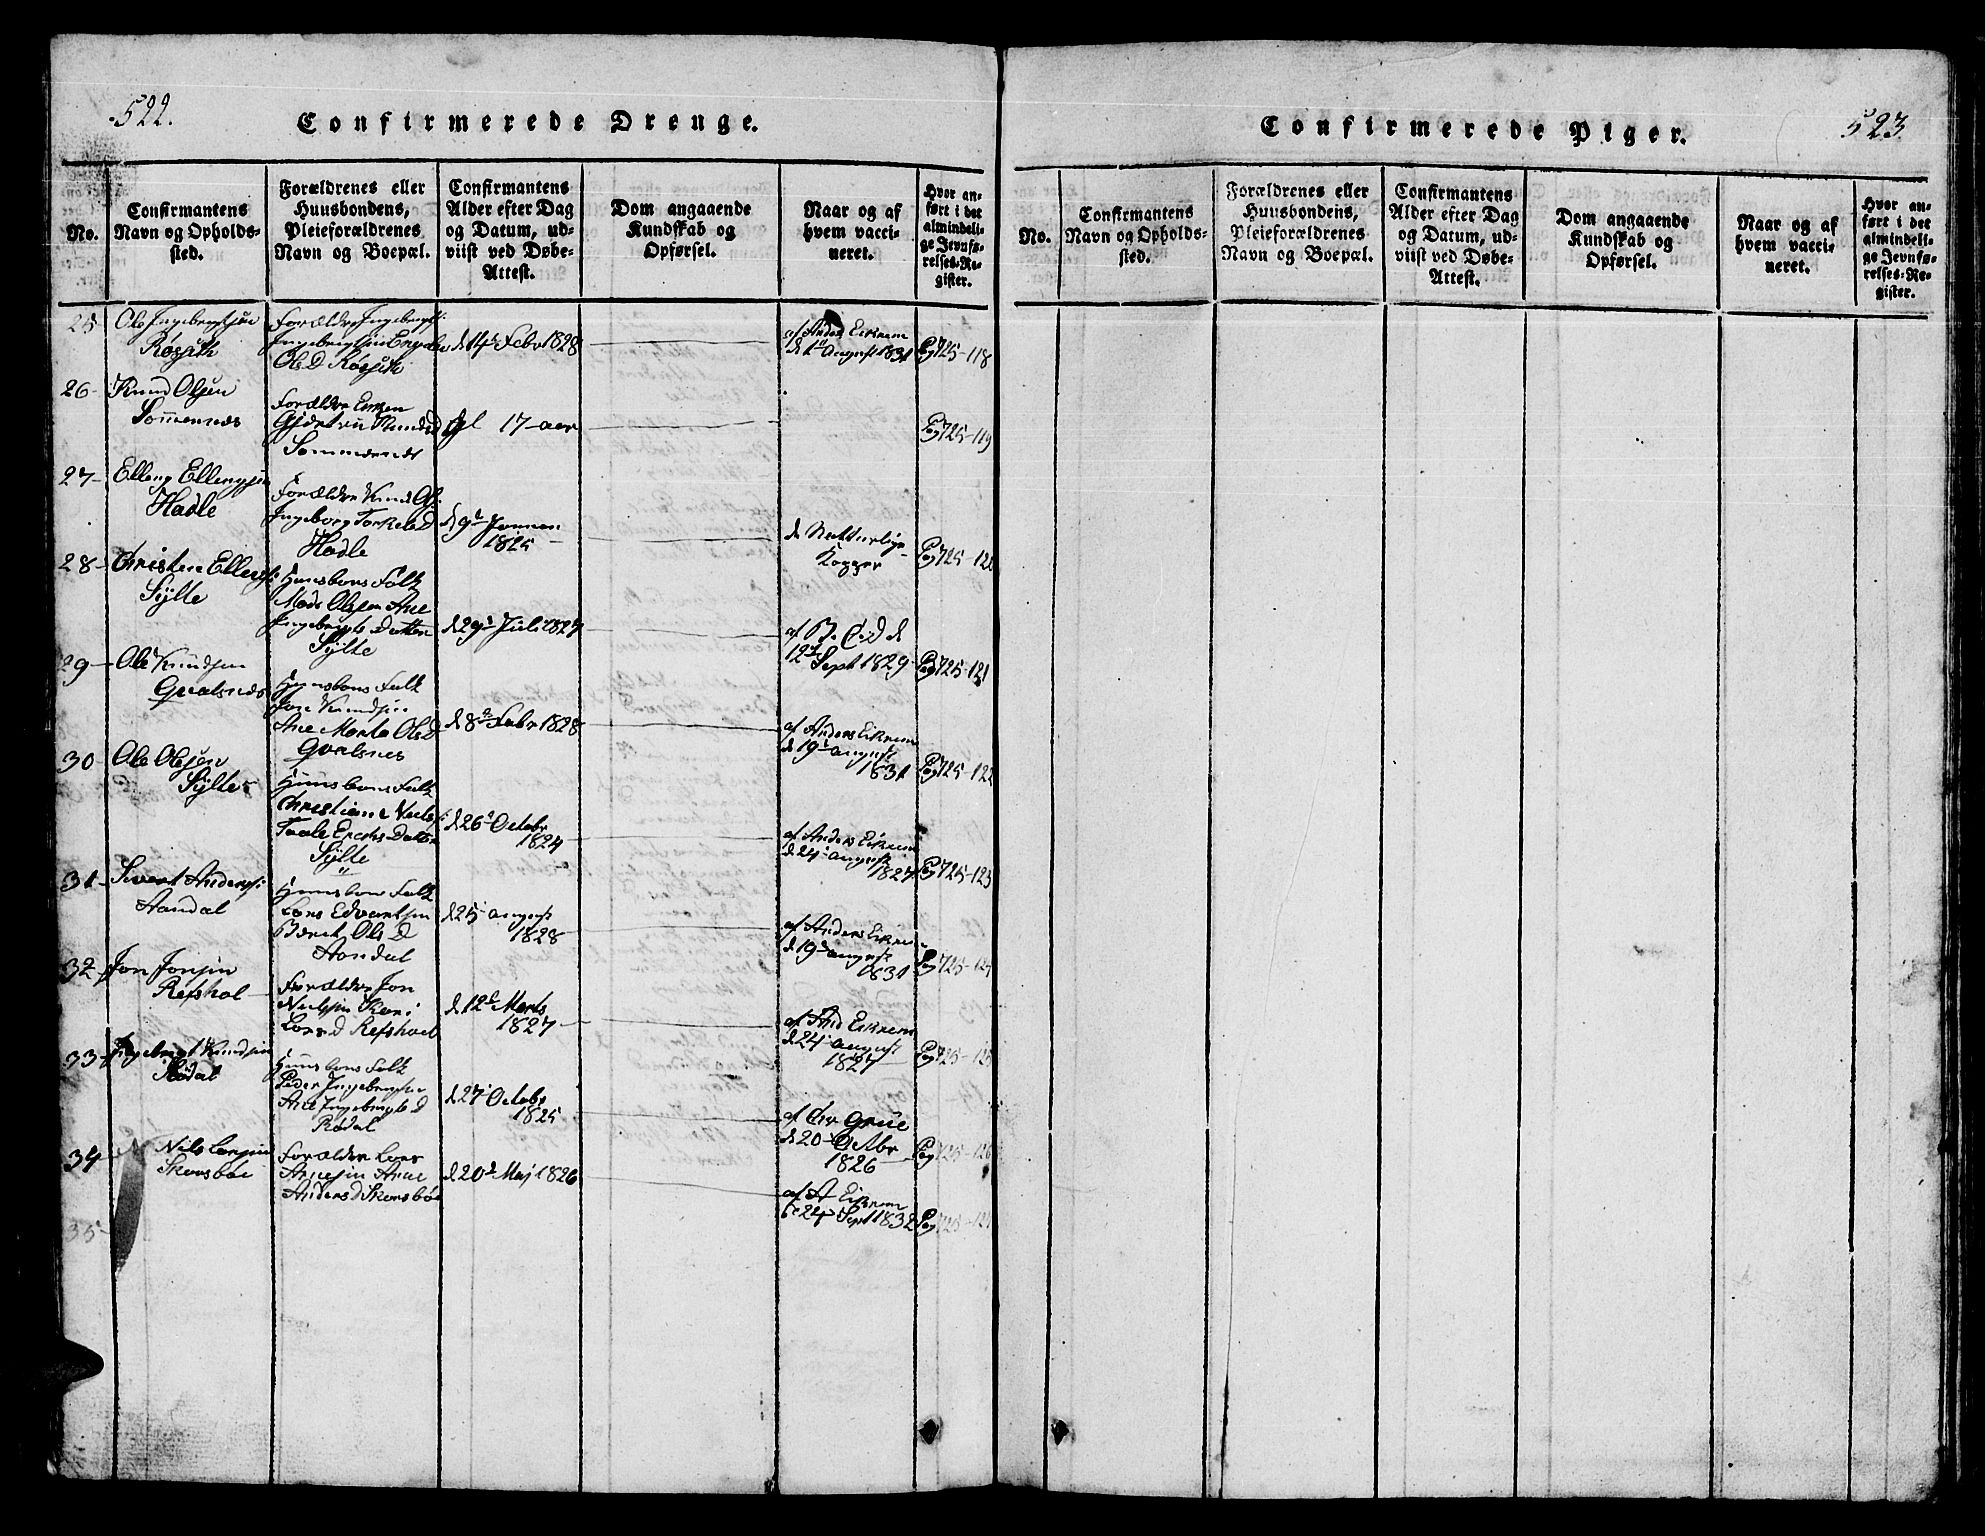 522.
Confirmerede Drenge.
No.
Confirmantens
Navn og Opholds-
sted.
Forældrenes eller
Huusbondens,
Pleieforældrenes
Navn og Boepæl.
Confirmantens
Alder efter Dag
og Datum, ud-
viist ved Døbe-
Attest.
Dom angaaende
Kundskab og
Opførsel.
Naar og af
hvem vacci-
neret.
Hvor an-
ført i det
almindeli-
ge Jevnfø-
relses-Re-
gister.
25
Ole Ingebrigtsen
Røssik
Forældre Ingebrigt
Ols D Røssik
d 14de Febr 1828
af Anders Eikrem
d 1 August 1831
Pag 725-118
26
Knud Olsen
Sommernæs
Forældre
Sommernæs
17 aar
Pag 725-119
27
Elleng Ellengsen
Hadle
Forældre Knud
Ingeborg Torkels D
Hadle
d 9de Januar
1825
de Naturlige
Kopper
Pag 725-120
28
Christen Ellengs
Sylte
Huusbons Folk
Mads Olsen Ane
Ingebrigts Datter
Sylte
d 29de Juli 1827
12te Sept 1829
Pag 725-121
29
Ole Knudsen
Gvalsnæs
Huusbons Folk
Jon Knudsen
Ane Marta Ols D
Gvalsnes
d 8de Febr 1828
af Anders Eikrem
d 19de August
1831
Pag 725-122
30
Ole Olsen
Sylte
Huusbons Folk
Christian Niels
Erichs Datter
Sylte
d 26de Octobr
1824
af Anders Eikrem
d 24 August
1827
Pag 725-123
31
Sivert Anders
Aandal
Huusbons Folk
Lars Edvartsen
Berit Ols D
Aandal
d 25 August
1828
af Anders Eikrem
d 19de August
1831
Pag 725-124
32
Jon Jonsen
Refshol
Forældre Jon
Nielsen Kari
Lars D Refshoel
d 12de Marts
1827
af And Eikrem
d 24 August
1827
Pag 725-125
33
Ingebrigt Knudsen
Rødal
Huusbons Folk
Peder Ingebrigtsen
Ane Ingebrigts D
Rødal
d 27 Octobr
1825
af Chr Grue
d 20 Octbr
1826
Pag 725-126
34
Niels Larsen
Skorsbøe
Forældre Lars
Ane
Anders D Skorsbøe
d 20de Maj 1826
af A Eikrem
24 Sept 1832
Pag 725-127
35
Confirmerede Piger.
523
No.
Confirmantens
Navn og Opholds-
sted.
Forældrenes eller
Huusbondens,
Pleieforældrenes
Navn og Boepæl.
Confirmantens
Alder efter Dag
og Datum, ud-
viist ved Døbe-
Attest.
Dom angaaende
Kundskab og
Opførsel.
Naar og af
hvem vacci-
neret.
Hvor an-
ført i det
almindeli-
ge Jevnfø-
relses-Re-
gister.